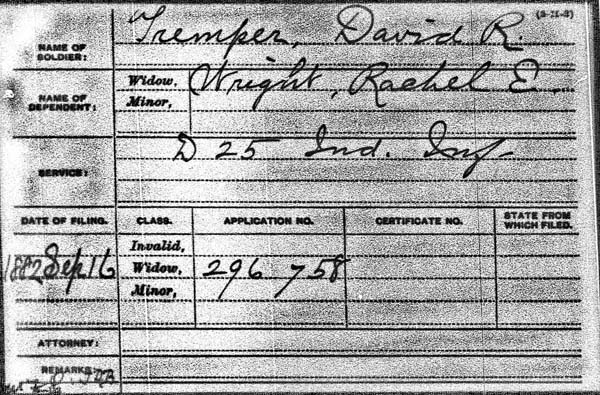 (3-H-3)
NAME OF SOLDIER: Tremper, David R.
NAME OF DEPENDENT: Widow, Wright, Rachel E.
Minor,
SERVICE: D 25 Ind. Inf
DATE OF FILING. CLASS. APPLICATION NO. CERTIFICATE NO. STATE FROM WHICH FILED.
Invalid,
1882 Sep 16 Widow, 296 758
Minor,
ATTORNEY:
REMARKS: